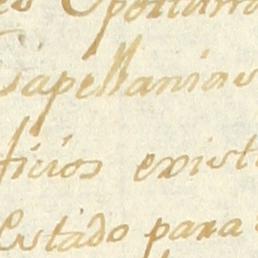 Oportuno
Capellanias
ficios exist
Estado para